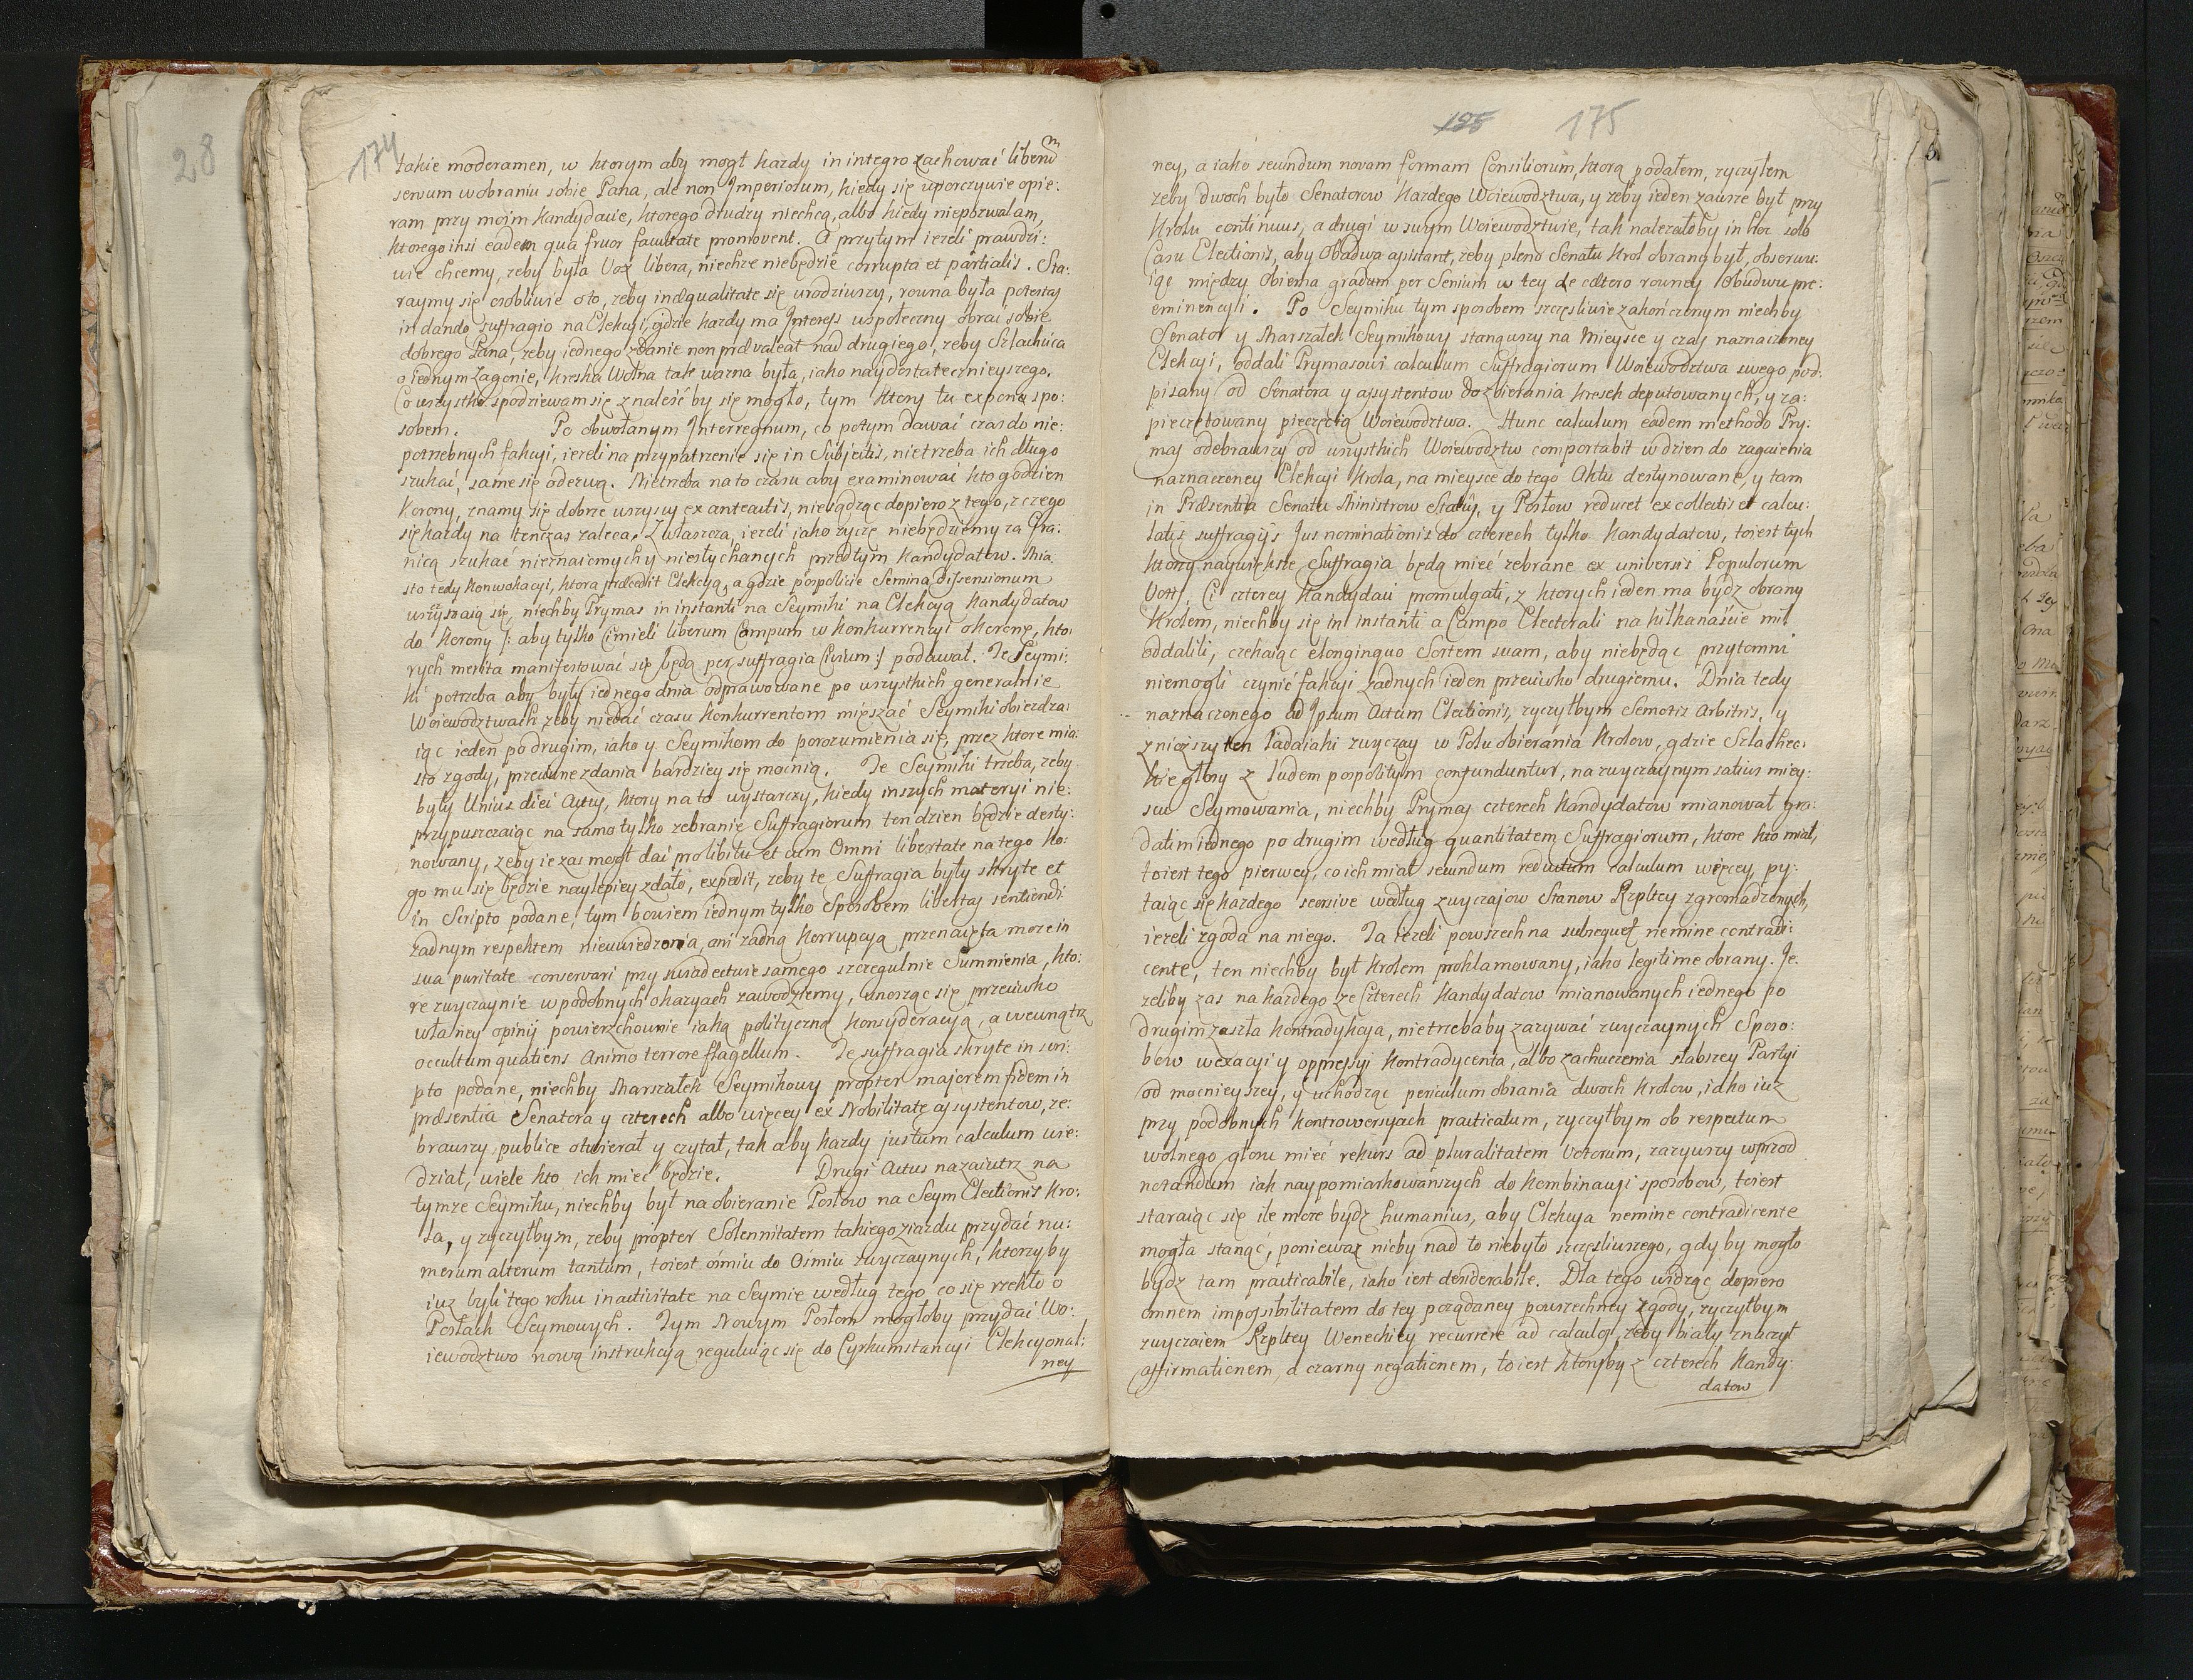 28
174
takie moderamen, w ktorym aby mogł kazdy in integro zachować liberum
sensum w obraniu sobie Pana, ale non Imperiosum, kiedy się uporczywie opie:
ram przy moim Kandydacie, ktorego drudzy niechcą, albo kiedy niepozwalam,
ktorego insi eadem qua fruor facultate promovent. A przytym iezeli prawdzi:
wie chcemy, zeby była Vox libera, niechze niebędzie corrupta et partialis. Sta:
raymy się osobliwie oto, zeby inæqualitate się urodziwszy, rowna była potestas
in dando suffragio na Elekcyi, gdzie kazdy ma Interess uspołeczny obrać sobie
dobrego Pana, zeby iednego zdanie non prævaleat nad drugiego, zeby Szlachcica
o iednym Zagonie, kreska Wolna tak wazna była, iako naydostatecznieyszego.
Co wszystko spodziewam się znaleść by się mogło, tym ktory tu expono spo:
sobem. Po obwołanym Interregnum, co potym dawać czas do nie:
potrzebnych fakcyi, iezeli na przypatrzenie się in Subjectis, nietrzeba ich długo
szukać, same się odezwą. Nietrzeba na to czasu aby examinować kto godzien
Korony, znamy się dobrze wszyscy ex anteactis, niebądząc dopiero z tego, z czego
się kazdy na tenczas zaleca. Zwłaszcza, iezeli iako zyczę niebędziemy za Gra:
nicą szukać nieznaiomych y niesłychanych przedtym Kandydatow. Mia:
sto tedy Konwokacyi, ktora præcedit Elekcyą, a gdzie pospolicie Semina dissensionum
wszczynaią się, niechby Prymas in instanti na Seymiki na Elekcyą Kandydatow
do Korony /: aby tylko Ci mieli liberum Campum w Konkurrencyi o Koronę, kto:
rych merita manifestować się będą per suffragia Civium :/ podawał. Te Seymi:
ki potrzeba aby były iednego dnia odprawowane po wszystkich generalnie
Woiewodztwach zeby niedać czasu Konkurrentom mięszać Seymiki obiezdza:
iąc ieden po drugim, iako y Seymikom do porozumienia się, przez ktore mia:
sto zgody, przeciwne zdania bardziey się mocnią. Te Seymiki trzeba, zeby
były Unius diei Actus, ktory na to wystarczy, kiedy inszych materyi nie:
przypuszczaiąc na samo tylko zebranie Suffragiorum ten dzien będzie desty:
nowany, zeby ie zas mogł dać pro libitu et cum Omni libertate na tego ko:
go mu się będzie naylepiey zdało, expedit, zeby te Suffragia były skryte et
in Scripto podane, tym bowiem iednym tylko Sposobem libertas sentiendi
zadnym respektem nieuwiedziona, ani zadną Korrupcyą przenaięta moze in
sua puritate conservari przy swiadectwie samego szczegulnie Sumnienia, kto:
re zwyczaynie w podobnych okazyach zawodziemy, unosząc się przeciwko
własney opinij powierzchownie iaką polityczną Konsyderacyą, a wewnątrz
occultum quatiens animo terrore flagellum. Te suffragia skryte in scri:
pto podane, niechby Marszałek Seymikowy propter majorem fidem in
præsentia Senatora y czterech albo więcey ex Nobilitate assystentow, ze:
brawszy, publice otwierał y czytał, tak aby kazdy justum calculum wie:
dział, wiele kto ich mieć będzie. Drugi Actus nazaiutrz na
tymze Seymiku, niechby był na obieranie Posłow na Seym Electionis Kro:
la, y zyczyłbym, zeby propter Solennitatem takiego ziazdu przydać nu:
merum alterum tantum, toiest ośmiu do Osmiu zwyczaynych, ktorzyby
iuz byli tego roku in activitate na Seymie według tego, co się rzekło o
Posłach Seymowych. Tym Nowym Posłom mogłoby przydać Wo:
iewodztwo nową instrukcyą reguluiąc się do Cyrkumstancyi Elekcyonal:
ney
125 175
ney, a iako secundum novam formam Consiliorum, ktorą podałem, zyczyłem
zeby dwoch było Senatorow kazdego Woiewodztwa, y zeby ieden zawsze był przy
Krolu continuus, a drugi w swym Woiewodztwie, tak nalezałoby in hoc solo
Casu Electionis, aby Obadwa assistant, zeby pleno Senatu Krol obrany był, obserwu:
iąc między Obiema gradum per Senium w tey de cætero rowney Obudwu pre:
eminencyi. Po Seymiku tym sposobem szczęśliwie zakończonym niechby
Senator y Marszałek Seymikowy stanąwszy na Mieysce y czas naznaczoney
Elekcyi, oddali Prymasowi calculum Suffragiorum Woiewodztwa swego pod:
pisany od Senatora y assystentow do zbierania kresek deputowanych, y za:
pieczętowany pieczęcią Woiewodztwa. Hunc calculum eadem methodo Pry:
mas odebrawszy od wszystkich Woiewodztw comportabit w dzien do zagaienia
naznaczoney Elekcyi Krola, na mieysce do tego Aktu destynowane, y tam
in Præsentia Senatu Ministrow Statûs, y Posłow reducet ex collectis et calcu:
latis suffragijs Jus nominationis do czterech tylko Kandydatow, toiest tych
ktorzy naywiększe Suffragia będą mieć zebrane ex universis Populorum
Votis. Ci czterey Kandydaci promulgati, z ktorych ieden ma bydz obrany
Krolem, niechby się in instanti a Campo Electorali na kilkanaście mil
oddalili, czekaiąc e longinquo Sortem suam, aby niebędąc przytomni
niemogli czynić fakcyi zadnych ieden przeciwko drugiemu. Dnia tedy
naznaczonego ad Ipsum Actum Electionis, zyczyłbym Semotis Arbitris, y
znioższy ten ladaiaki zwyczay w Polu obierania Krolow, gdzie Szlachec:
kie głosy z ludem pospolitym confunduntur, na zwyczaynym satius miey:
scu Seymowania, niechby Prymas czterech Kandydatow mianował gra:
datim iednego po drugim według quantitatem Suffragiorum, ktore kto miał,
toiest tego pierwey, co ich miał secundum reductum calculum więcey, py:
taiąc się kazdego seorsive według zwyczaiow Stanow Rzpltey zgromadzonych,
iezeli zgoda na niego. Ta iezeli powszechna subsequet nemine contradi:
cente, ten niechby był Krolem proklamowany, iako legitime obrany. Je:
zeliby zas na kazdego ze Czterech Kandydatow mianowanych iednego po
drugim zaszła Kontradykcya, nietrzebaby zazywać zwyczaynych Sposo:
bow wexacyi y oppressyi Kontradycenta, albo zachuczenia słabszey Partyi
od mocnieyszey, y uchodząc periculum obrania dwoch Krolow, iako iuz
przy podobnych Kontrowersyach practicatum, zyczyłbym ob respectum
wolnego głosu mieć rekurs ad pluralitatem Votorum, zazywszy wprzod
notandum iak naypomiarkowanszych do kombinacyi sposobow, toiest
staraiąc się ile moze bydz humanius, aby Elekcya nemine contradicente
mogła stanąć, poniewaz nicby nad to niebyło szczęśliwszego, gdy by mogło
bydz tam practicabile, iako iest desiderabile. Dla tego widząc dopiero
omnem impossibilitatem do tey poządaney powszechney zgody, zyczyłbym
zwyczaiem Rzpltey Weneckiey recurrere ad calculos, zeby biały znaczył
affirmationem, a czarny negationem, toiest ktoryby z czterech Kandy:
datow